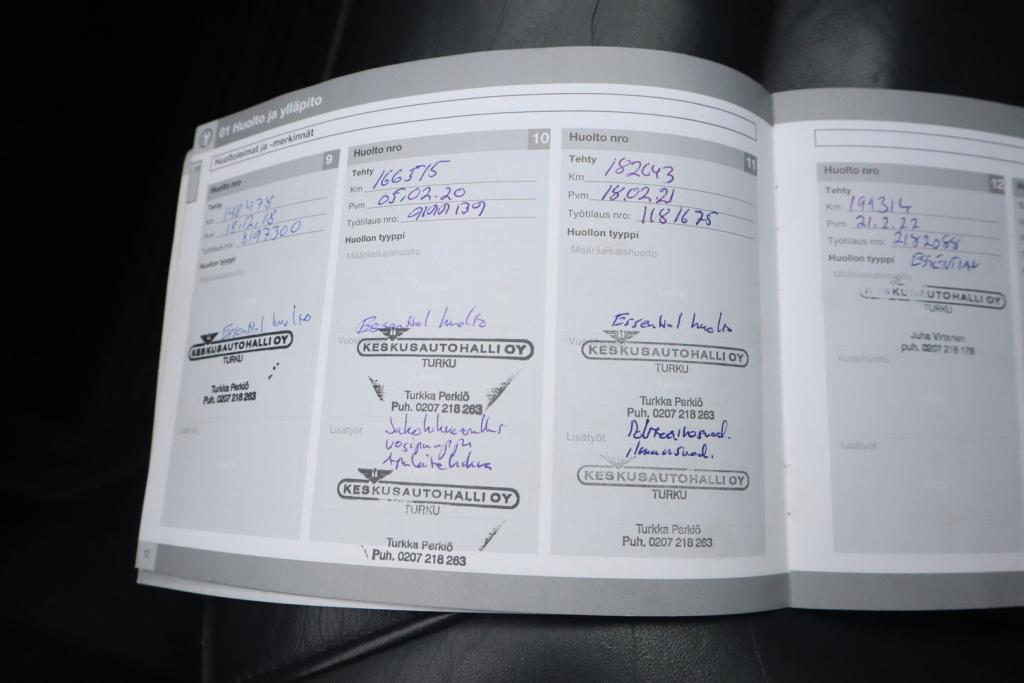 01 Huolto ja ylläpito
Huoltoleimat ja -merkinnät
Huolto nro 9
Tehty
Km 148478
Pvm 18.12.18
Työtilaus nro: 8197300
Huollon tyyppi
Määräaikaishuolto
Essential huolto
KESKUSAUTOHALLI OY
TURKU
Turkka Perkiö
Puh. 0207 218 263
Lisätyöt
12
Huolto nro 10
Tehty
Km 166575
Pvm 05.02.20
Työtilaus nro:
Huollon tyyppi
Määräaikaishuolto
Leima
Essential huolto
KESKUSAUTOHALLI OY
TURKU
Leima
Turkka Perkiö
Puh. 0207 218 263
Lisätyöt Jakohihnanvaihto
vesipumppu
Apulaitehihna
KESKUSAUTOHALLI OY
TURKU
Turkka Perkiö
Puh. 0207 218 263
Huolto nro 11
Tehty
Km 182643
Pvm 18.02.21
Työtilaus nro: 1181675
Huollon tyyppi
Määräaikaishuolto
Leima
Essential huolto
KESKUSAUTOHALLI OY
TURKU
Leima
Turkka Perkiö
Puh. 0207 218 263
Lisätyöt Polttoainesuod.
ilmansuod.
KESKUSAUTOHALLI OY
TURKU
Turkka Perkiö
Puh. 0207 218 263
Huolto nro 12
Tehty
Km 199314
Pvm 21.2.22
Työtilaus nro: 2182088
Huollon tyyppi ESSENTIAL
Määräaikaishuolto
KESKUSAUTOHALLI OY
TURKU
Juha Virtanen
puh. 0207 218 178
Vuosihuolto
Lisätyöt